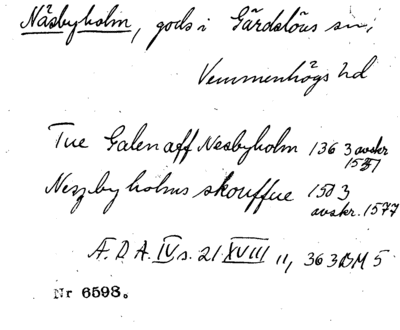 Näsbyholm, gods i Gärdslövs sn,
Vemmenhögs hd
Tue Galen aff Nesbyholm 1363 avskr
Neszby holms skouffue 1503
avskr. 1577
Æ. D. A. IV s. 21 XVIII 11, 36
Nr 6598.